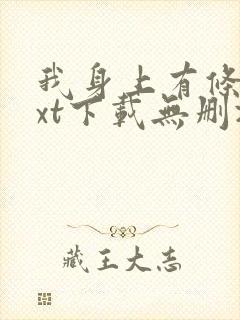 我身上有條
xt下載無刪
藏王大志